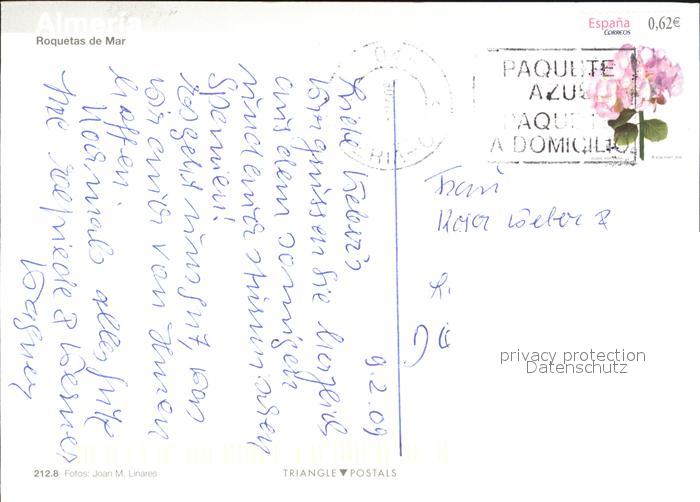 Almería
Roquetas de Mar
España
CORREOS
0,62€
PAQUETE
AZUL
PAQUE
A DOMICILIO
9.2.09
Liebe Weber's
Wir grüssen Sie herzlich
aus dem sonnigen
Spanien!
Es geht uns gut, was
wir auch von Ihnen
hoffen
Nochmals alles Gute
Ihre
Wagner
Frau
Weber
privacy protection
Datenschutz
212.8 Fotos: Joan M. Linares
TRIANGLE▼POSTALS